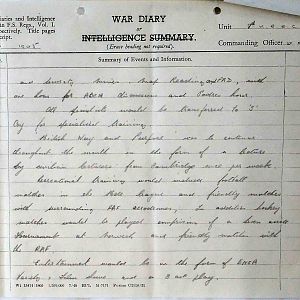 Diaries and Intelligence
in F.S. Regs., Vol. I.
respectively. Title pages
script.
WAR DIARY
OF
INTELLIGENCE SUMMARY.
(Erase heading not required).
Unit
Commanding Officer
Summary of Events and Information.
and Map Reading, and P.A.D., with
one hour for ABCA discussion and
All would be transferred to "J"
Coy for specialised training.
British Way and Purpose was to continue
throughout the month in the form of a lecture
by civilian lecturers from Cambridge once per week.
Recreational training would embrace football
matches in the League and friendly matches
with surrounding RAF aerodromes. In addition hockey
matches would be played comprising of a seven aside
tournament at Norwich and friendly matches with
the RAF.
Entertainment would be in the form of ENSA
Variety, Film Show and a 3 act play.